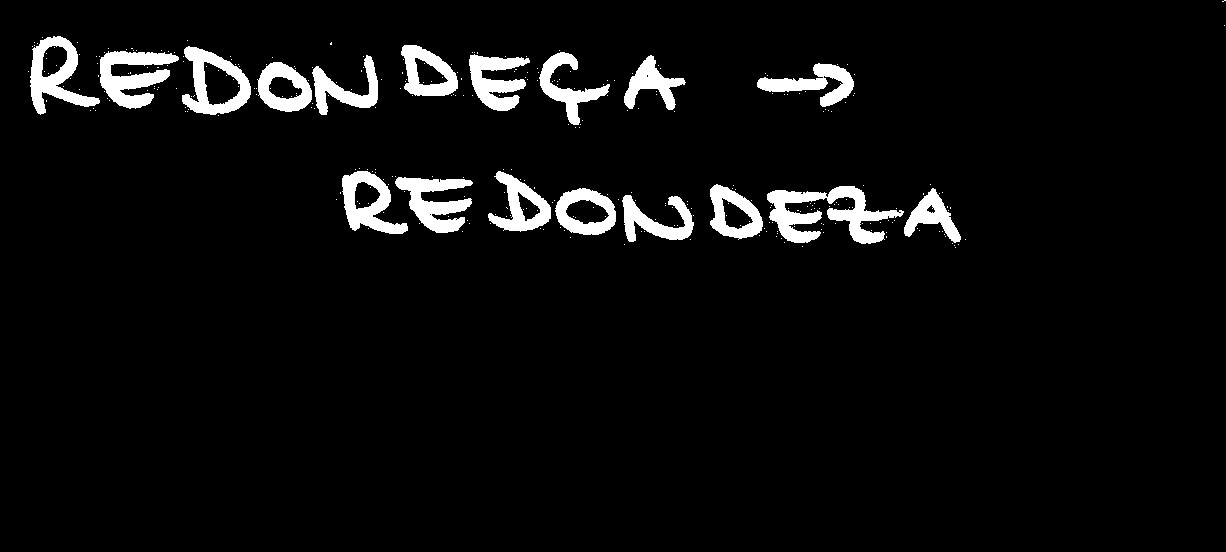 REDONDEÇA →
REDONDEZA